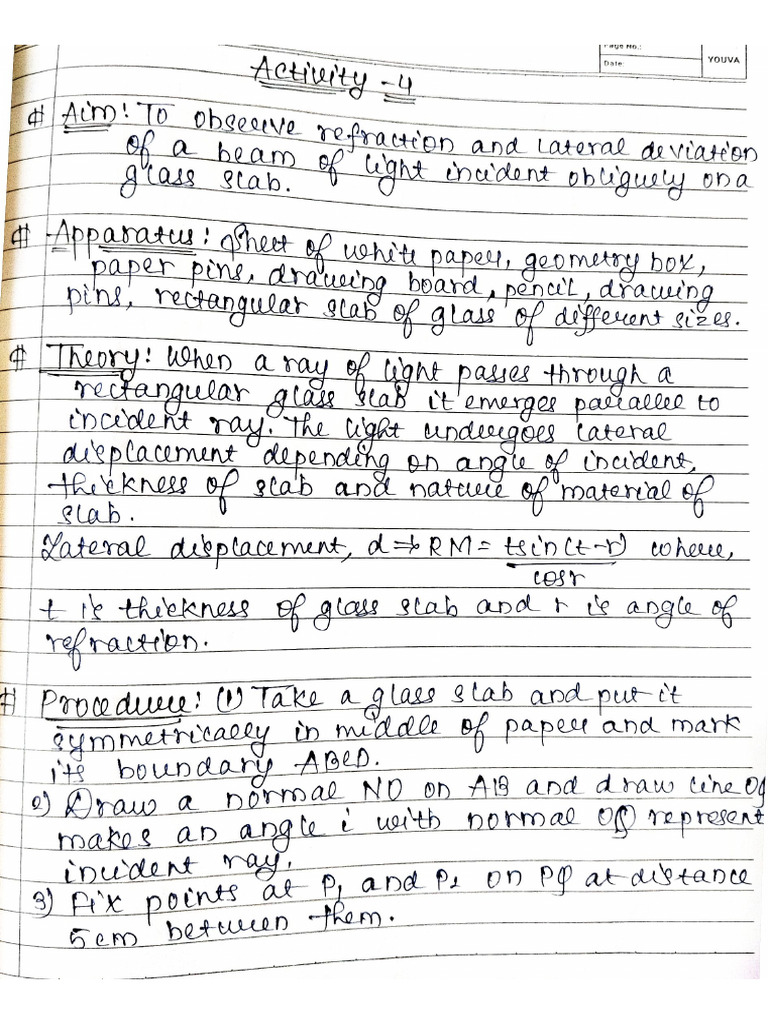 Page No.:
Date:
YOUVA
Activity - 4
# Aim: To observe refraction and lateral deviation
of a beam of light incident obliquely on a
glass slab.
# Apparatus: Sheet of white paper, geometry box,
paper pins, drawing board, pencil, drawing
pins, rectangular slab of glass of different sizes.
# Theory: When a ray of light passes through a
rectangular glass slab it emerges parallel to
incident ray. The light undergoes lateral
displacement depending on angle of incident,
thickness of slab and nature of material of
slab.
Lateral displacement, d ⇒ RM = tsin(t-r) where,
cosr
t is thickness of glass slab and r is angle of
refraction.
# Procedure: (1) Take a glass slab and put it
symmetrically in middle of paper and mark
its boundary ABCD.
2) Draw a normal NO on AB and draw line OQ
makes an angle i with normal represent
incident ray.
3) Fix points at P1 and P2 on PQ at distance
5cm between them.